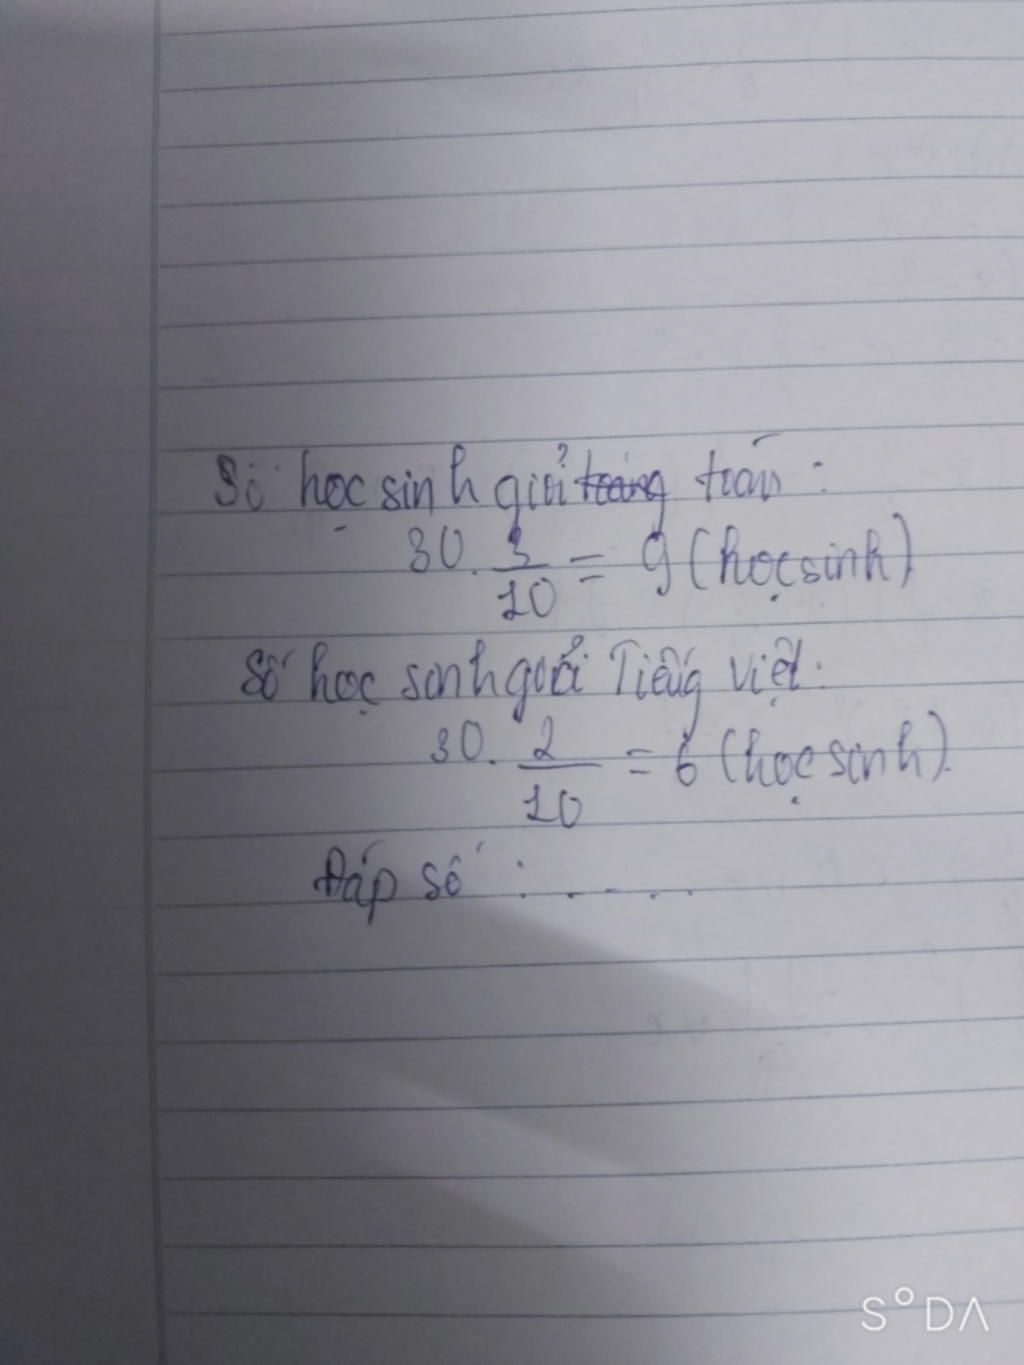 Số học sinh giỏi toán :
30 . 3/10 = 9 (học sinh)
Số học sinh giỏi Tiếng việt :
30 . 2/10 = 6 (học sinh).
Đáp số : . . . .
S°DA